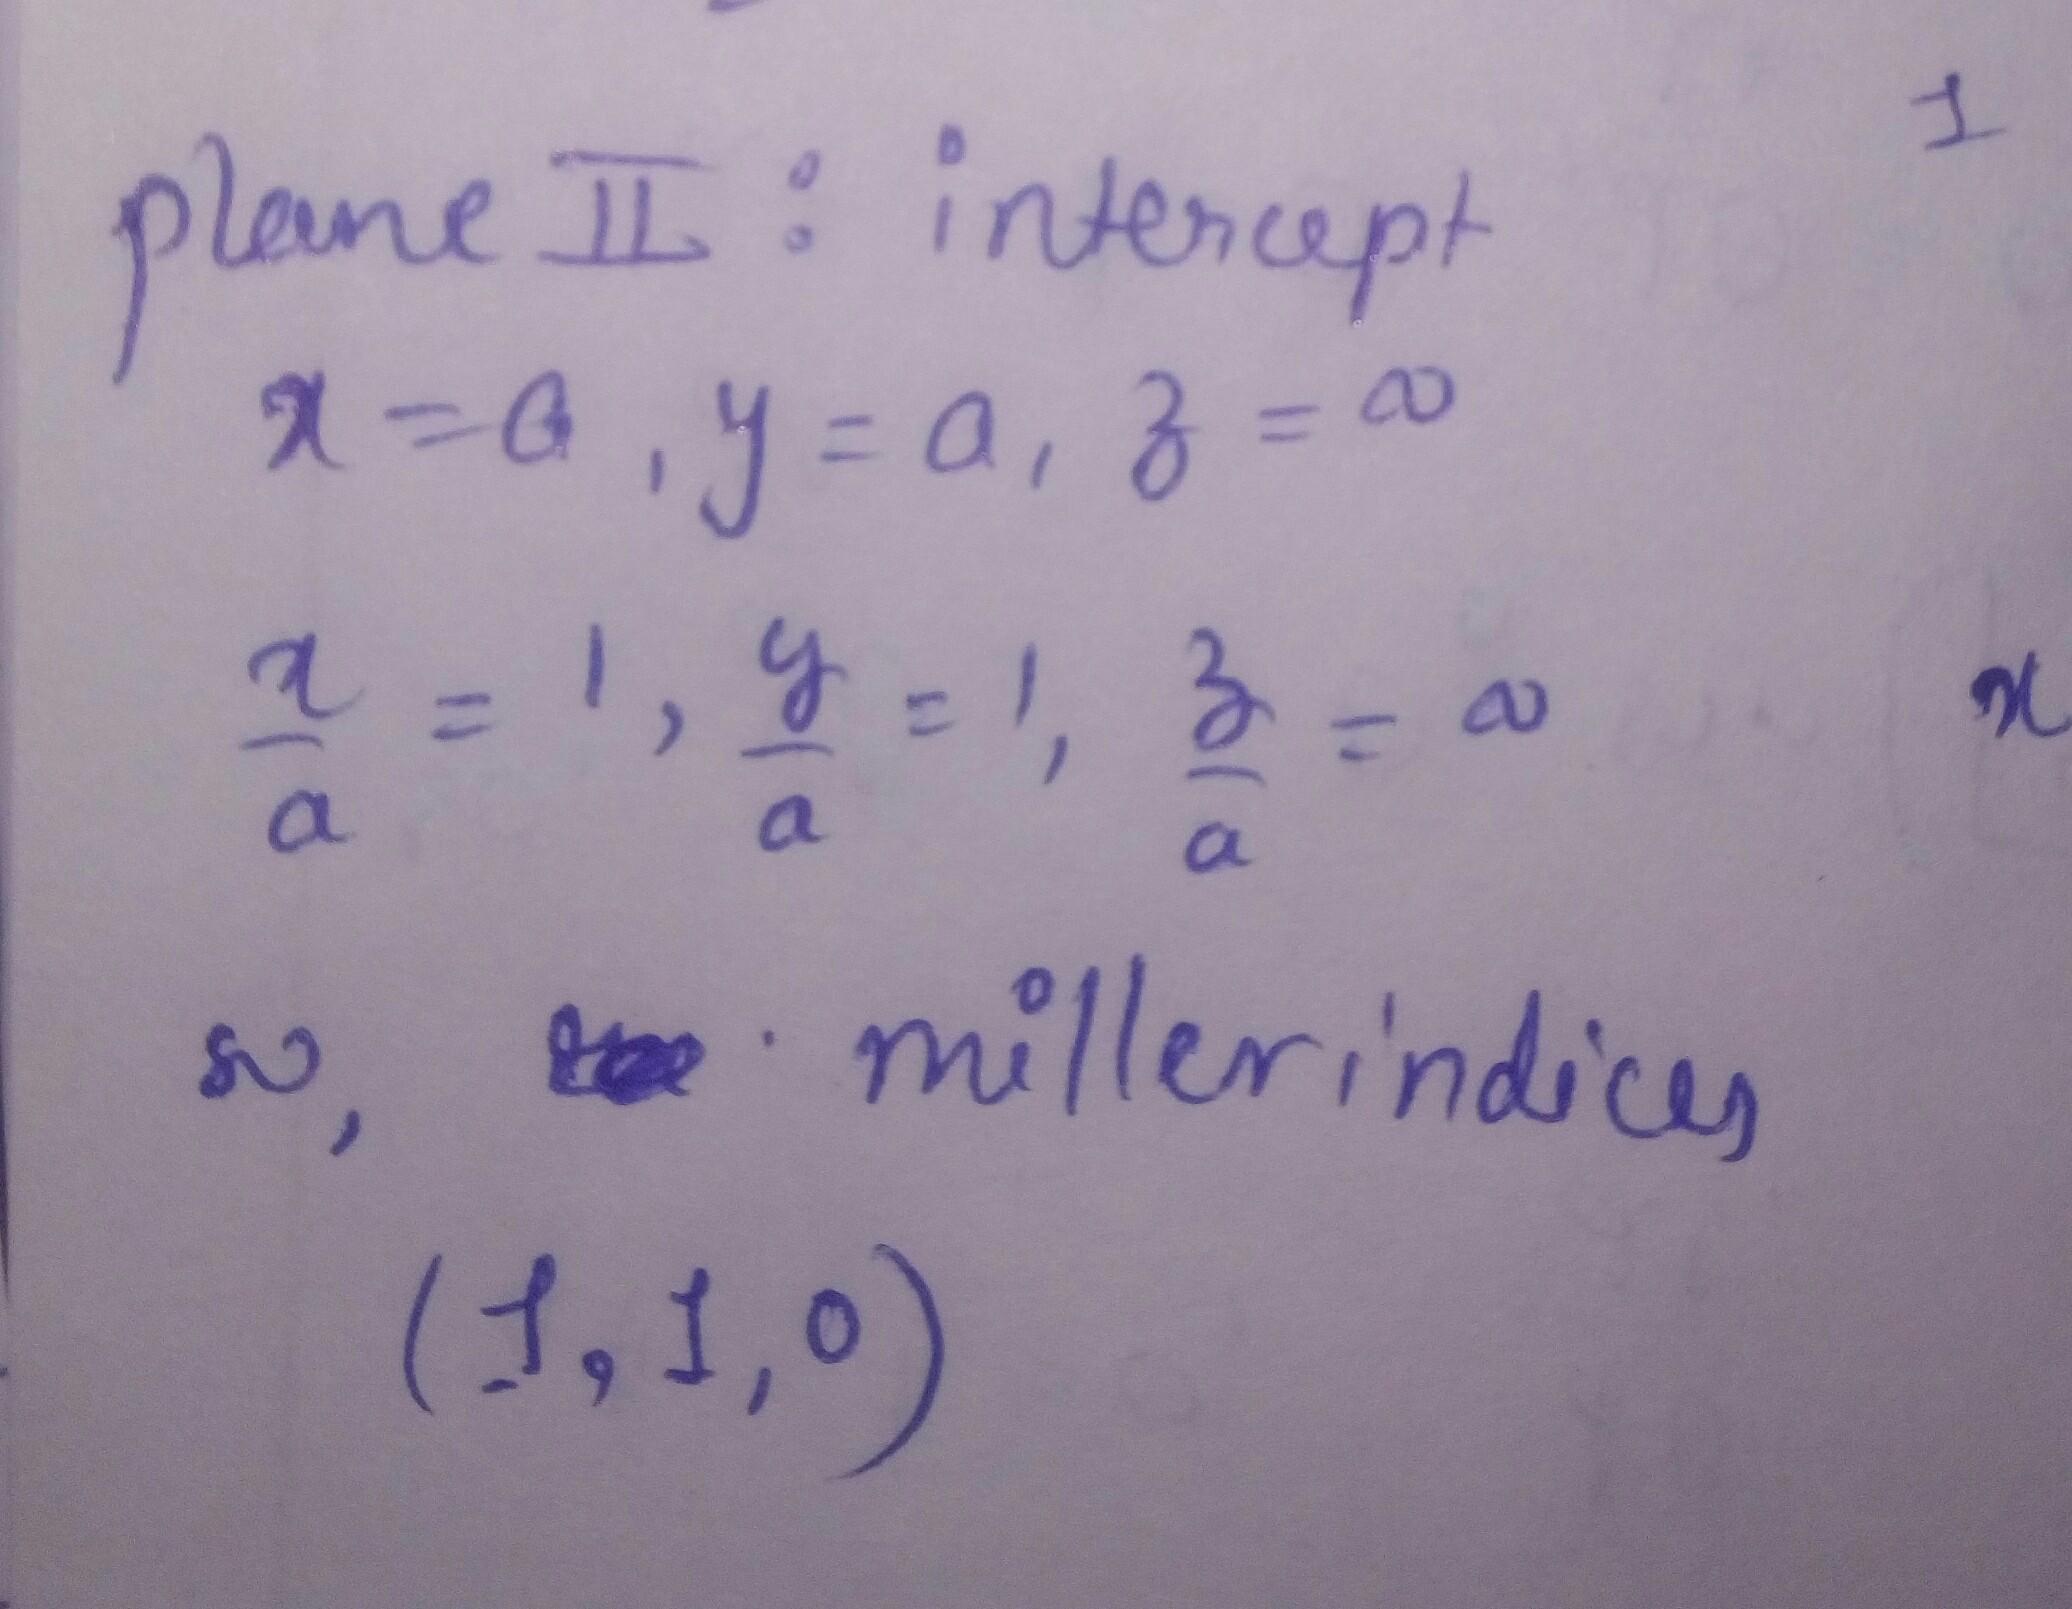 1
plane II : intercept
x = a, y = a, z = ∞
x/a = 1, y/a = 1, z/a = ∞
x
so, miller indices
(1, 1, 0)